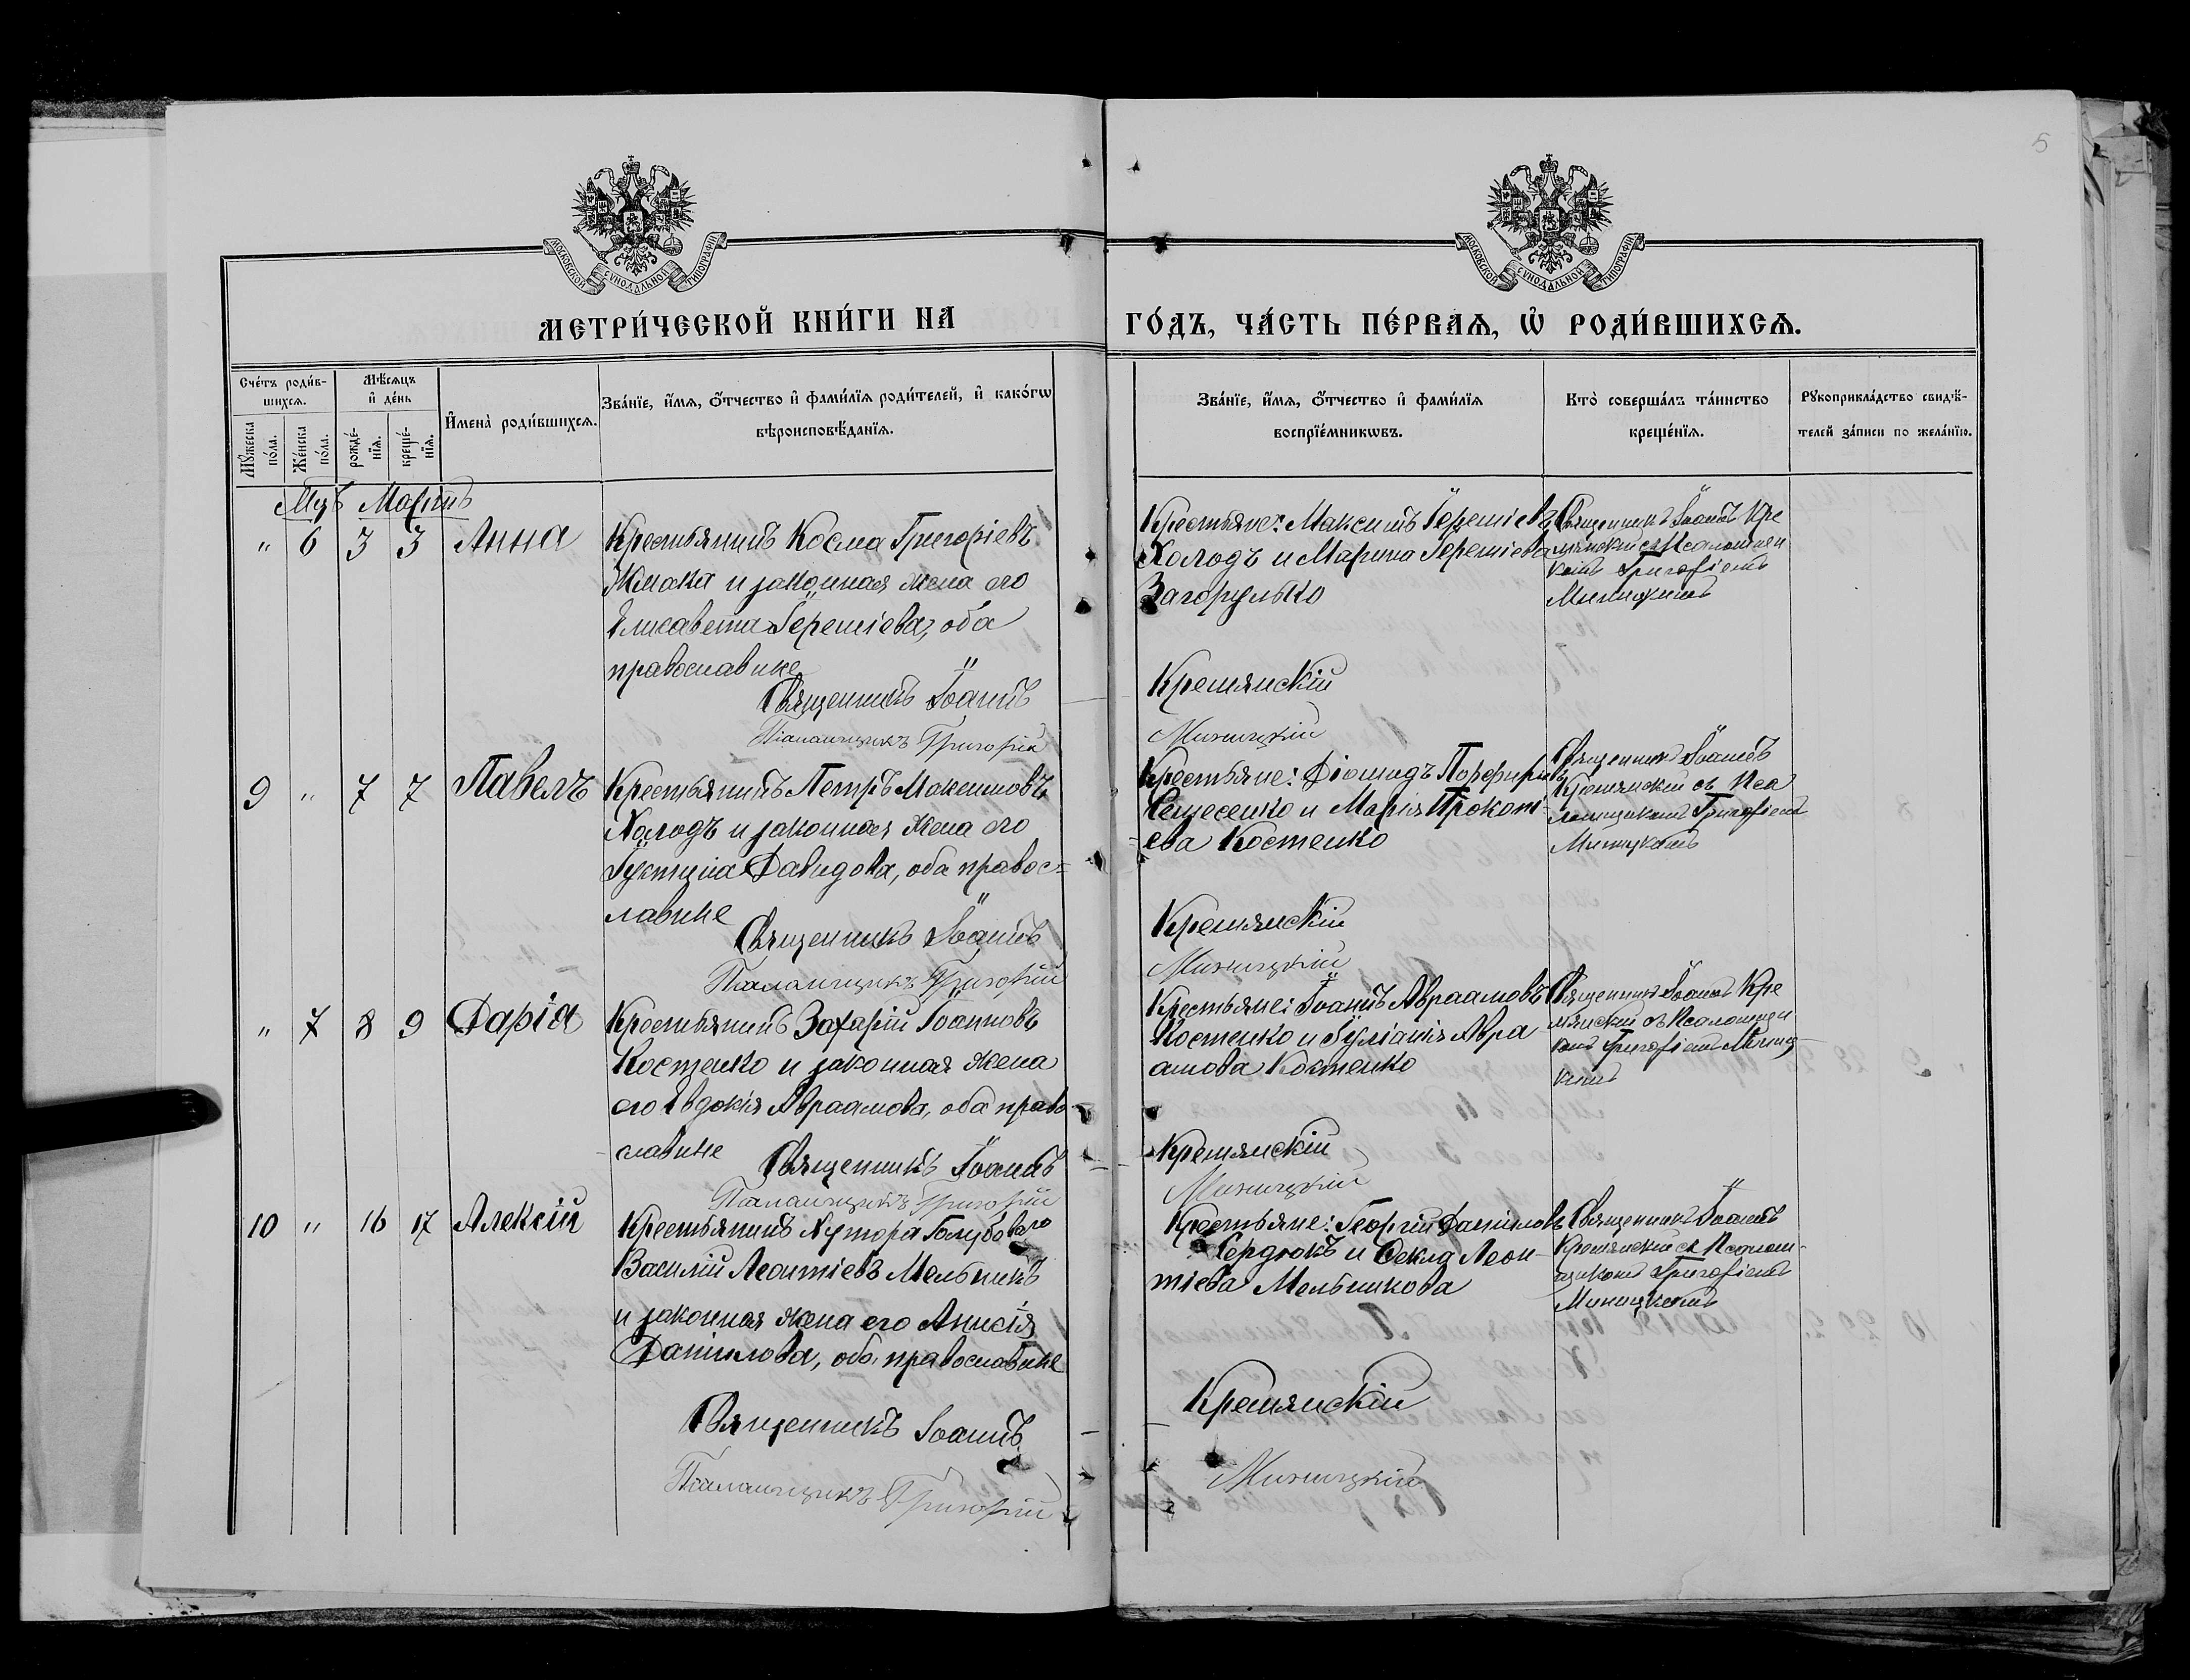 5
МОСКОВСКОЙ СѴНОДАЛЬНОЙ ТИПОГРАФІИ
МОСКОВСКОЙ СѴНОДАЛЬНОЙ ТИПОГРАФІИ
МЕТРИ́ЧЕСКОЙ КНИ́ГИ НА ГО́ДЪ, ЧА́СТЬ ПЕ́РВАѦ, Ѽ РОДИ́ВШИХСѦ.
Сче́тъ роди́в-
шихсѧ.
Мꙋ́жеска
по́ла.
Же́нска
по́ла.
Мѣ́сѧцъ
и҆ де́нь
рожде́-
нїѧ.
креще́-
нїѧ.
И҆мена̀ роди́вшихсѧ.
Зва́нїе, и҆́мѧ, ѻ҆́тчество и҆ фами́лїѧ роди́телей, и҆ како́гѡ
вѣроисповѣ́данїѧ.
Зва́нїе, и҆́мѧ, ѻ҆́тчество и҆ фами́лїѧ
воспрїе́мникѡвъ.
Кто̀ соверша́лъ та́инство
креще́нїѧ.
Рꙋкоприкла́дство свидѣ́-
телей за́писи по жела́нїю.
Мцъ Мартъ
" 6 3 3 Анна
Крестьянинъ Косма Григоріевъ
и законная жена его
Елисавета Іереміева, оба
православные
Священникъ Іоаннъ
Псаломщикъ Григорій
Крестьяне: Максимъ Іереміевъ
Холодъ и Марина Іереміева
Загорулько
Кремянскій
Миницкій
Священникъ Іоаннъ Кре
мянскій съ Псаломщи
комъ Григоріемъ
Миницкимъ
9 " 7 7 Павелъ
Крестьянинъ Петръ Максимовъ
Холодъ и законная жена его
Іустина Давидова, оба правос=
лавные
Священникъ Іоаннъ
Псаломщикъ Григорій
Крестьяне: Діомидъ Порфирьевъ
и Марія Прокопі-
ева Костенко
Кремянскій
Миницкій
Священникъ Іоаннъ
Кремянскій съ Пса
ломщикомъ Григоріемъ
Миницкимъ
" 7 8 9 Дарія
Крестьянинъ Захарій Іоанновъ
Костенко и законная жена
его Евдокія Авраамова, оба право
славные
Священникъ Іоаннъ
Псаломщикъ Григорій
Крестьяне: Іоаннъ Авраамовъ
Костенко и Іуліанія Авра
амова Костенко
Кремянскій
Миницкій
Священникъ Іоаннъ Кре
мянскій съ Псаломщи
комъ Григоріемъ Миниц
кимъ
10 " 16 17 Алексій
Крестьянинъ Хутора Голубоваго
Василій Леонтіевъ Мельникъ
и законная жена его Анисія
Даниилова, оба православные
Священникъ Іоаннъ
Псаломщикъ Григорій
Крестьяне: Георгій Данииловъ
Сердюкъ и Ѳекла Леон-
тіева Мельникова
Кремянскій
Миницкій
Священникъ Іоаннъ
Кремянскій съ Псалом-
щикомъ Григоріемъ
Миницкимъ